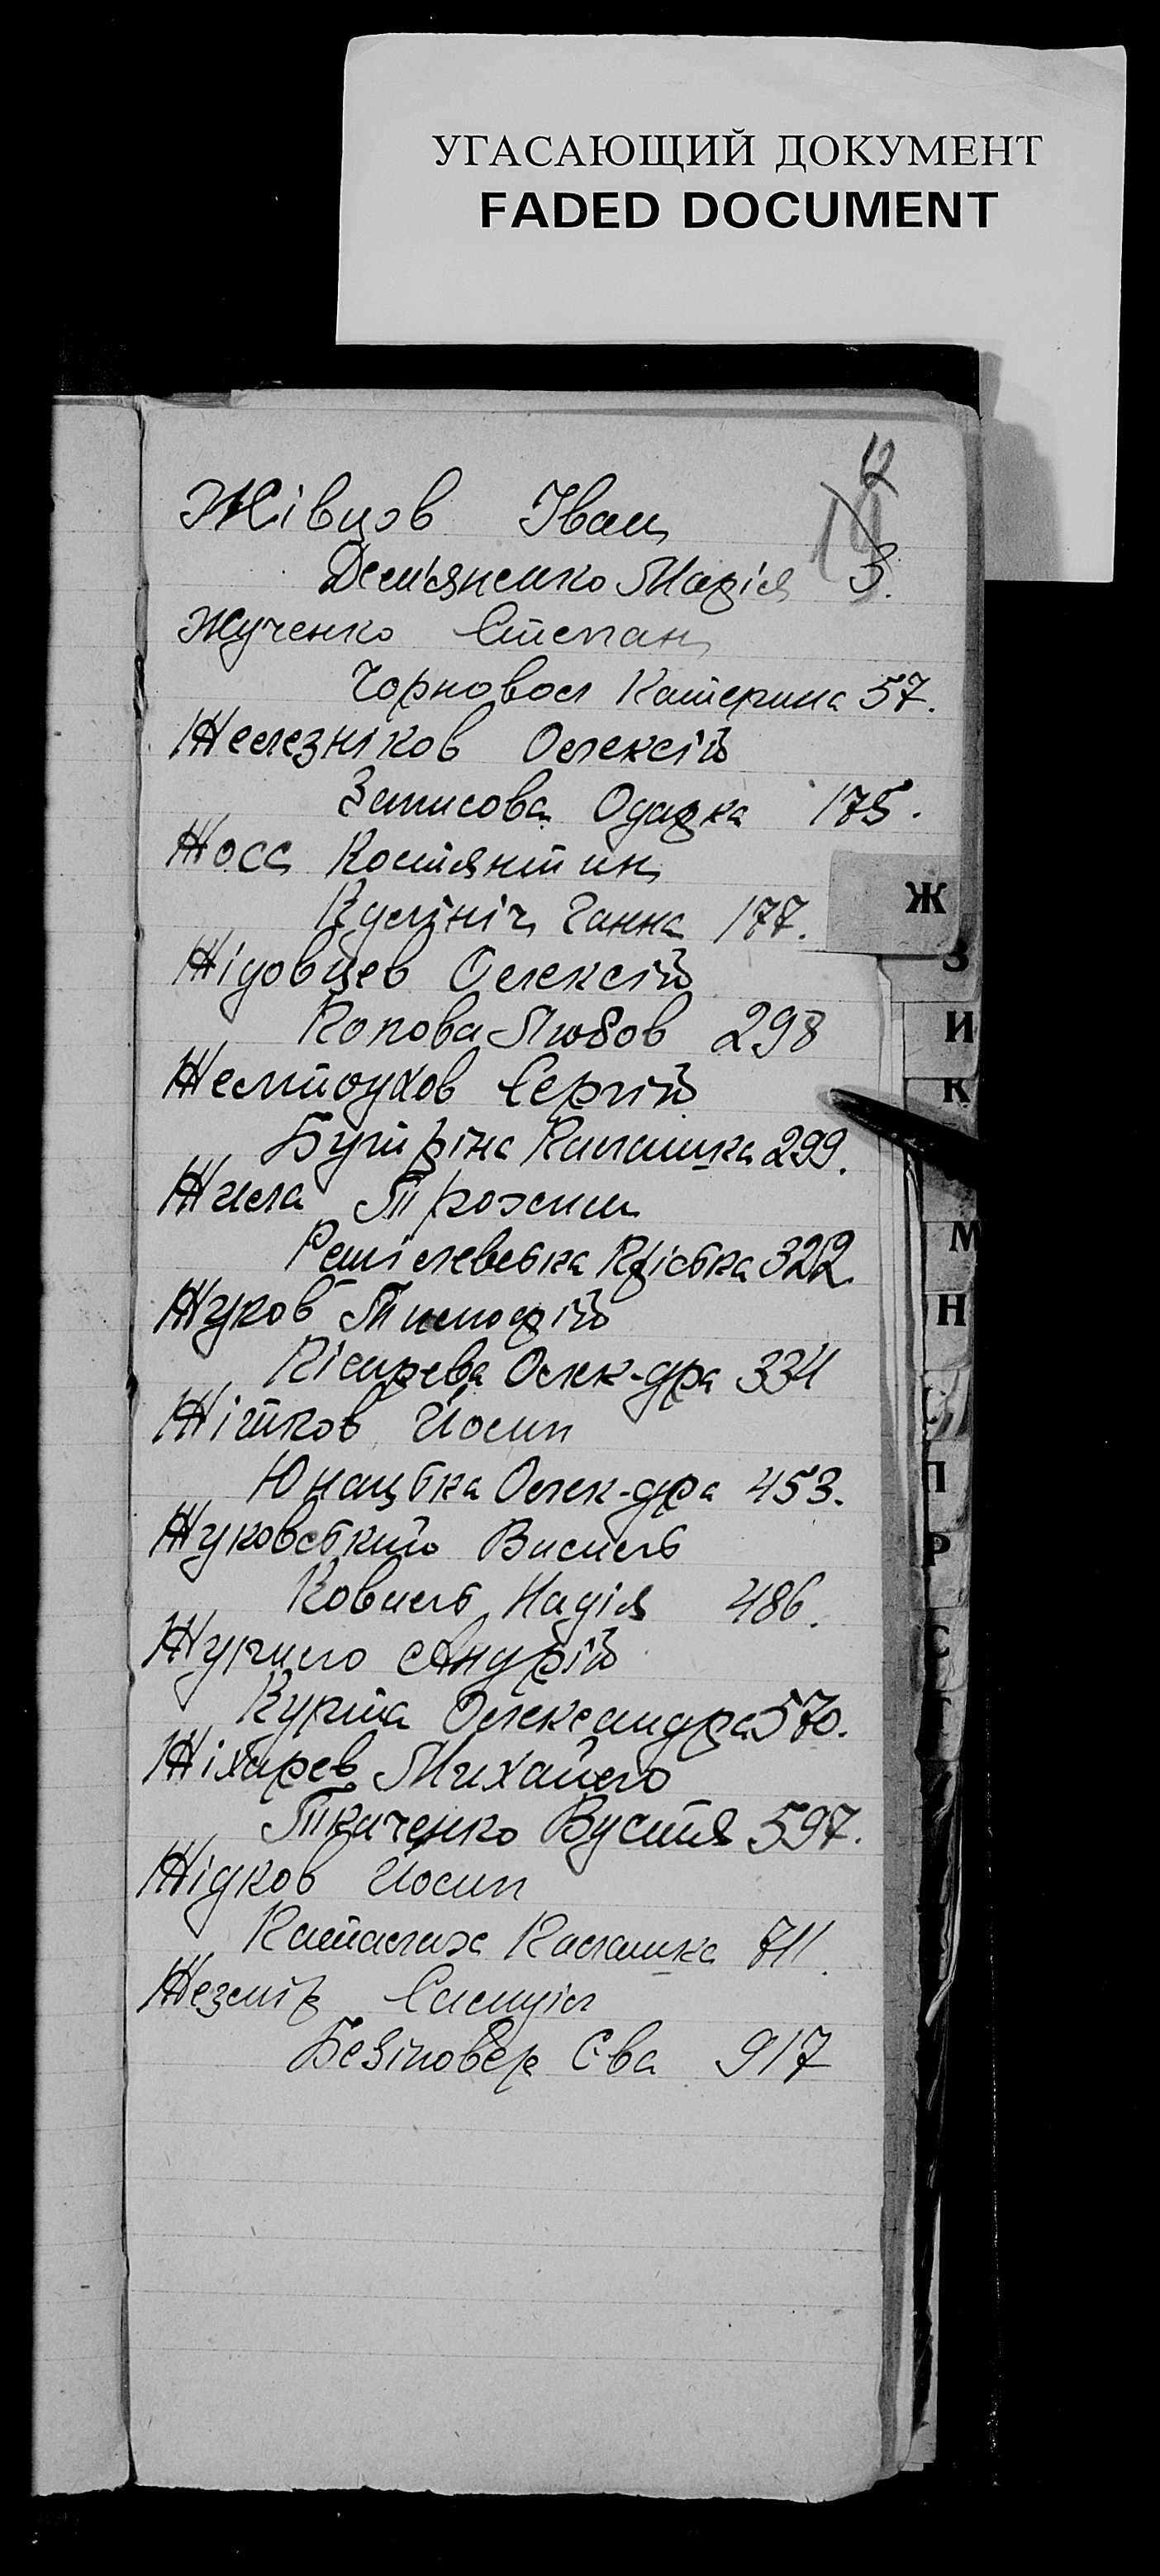 УГАСАЮЩИЙ ДОКУМЕНТ
FADED DOCUMENT
12
Жівцов Іван
Дем'яненко Марія 3.
Жученко Степан
Чорновол Катерина 57.
Железніков Олексій
Запісова Одарка 175.
Жосс Костянтин
Кулініч Ганна 177.
Ж
Жідовцев Олексій
З
Попова Любов 298
И
Желтоухов Сергій
К
Бутріна Палашка 299.
Жила Трохим
Решілевська Крістка 322
М
Жуков Тимофій
Н
Пісарева Олек-дра 334
Жітков Йосип
Юнацька Олек-дра 453.
П
Жуковський Василь
Р
Коваль Надія 486.
Журило Андрій
С
Курта Олександра 570.
Т
Жіхарев Михайло
Ткаченко Вустя 597.
Жідков Йосип
Палашка 711.
Самуіл
Безіновер Єва 917